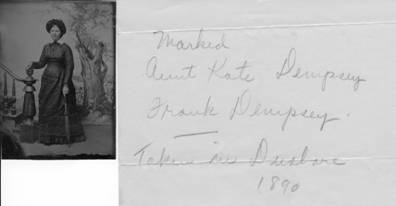 Marked
Aunt Kate Dempsey
Frank Dempsey.
Taken in
1890